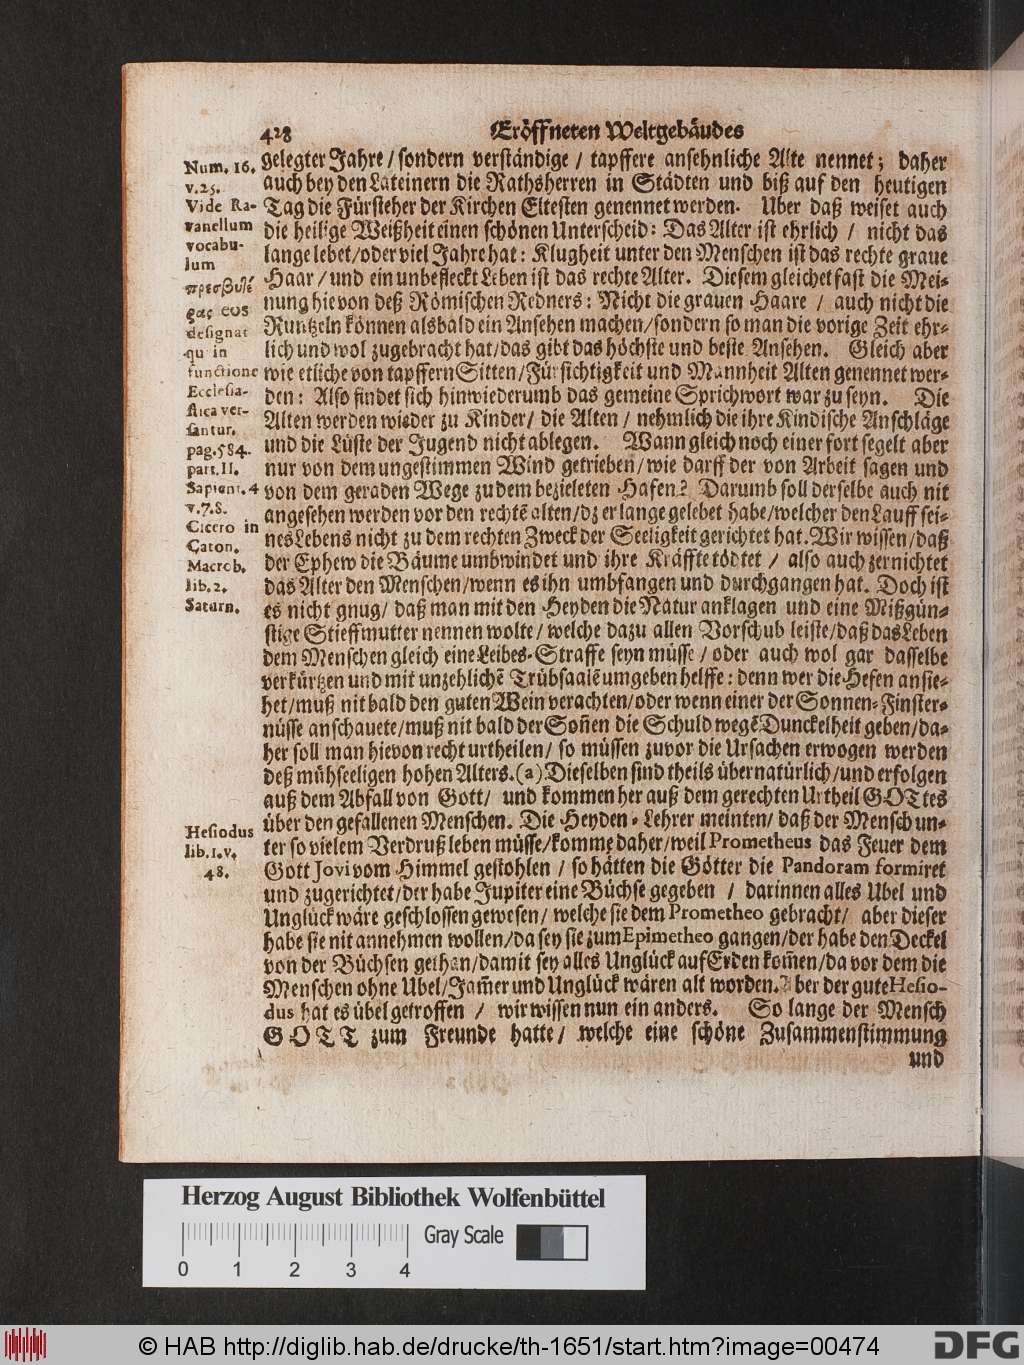 428 Eröffneten Weltgebäudes
gelegter Jahre / sondern verständige / tapffere ansehnliche Alte nennet; daher
auch bey den Lateinern die Rathsherren in Städten und biß auf den heutigen
Tag die Fürsteher der Kirchen Eltesten genennet werden. Uber daß weiset auch
die heilige Weißheit einen schönen Unterscheid: Das Alter ist ehrlich / nicht das
lange lebet / oder viel Jahre hat: Klugheit unter den Menschen ist das rechte graue
Haar / und ein unbefleckt Leben ist das rechte Alter. Diesem gleichet fast die Mei-
nung hievon deß Römischen Redners: Nicht die grauen Haare / auch nicht die
Runtzeln können alsbald ein Ansehen machen / sondern so man die vorige Zeit ehr-
lich und wol zugebracht hat / das gibt das höchste und beste Ansehen. Gleich aber
wie etliche von tapffern Sitten / Fürsichtigkeit und Mannheit Alten genennet wer-
den: Also findet sich hinwiederumb das gemeine Sprichwort war zu seyn. Die
Alten werden wieder zu Kinder / die Alten / nehmlich die ihre Kindische Anschläge
und die Lüste der Jugend nicht ablegen. Wann gleich noch einer fort segelt aber
nur von dem ungestimmen Wind getrieben / wie darff der von Arbeit sagen und
von dem geraden Wege zu dem bezieleten Hafen? Darumb soll derselbe auch nit
angesehen werden vor den rechtẽ alten / dz er lange gelebet habe / welcher den Lauff sei-
nes Lebens nicht zu dem rechten Zweck der Seeligkeit gerichtet hat. Wir wissen / daß
der Ephew die Bäume umbwindet und ihre Kräffte tödtet / also auch zernichtet
das Alter den Menschen / wenn es ihn umbfangen und durchgangen hat. Doch ist
es nicht gnug / daß man mit den Heyden die Natur anklagen und eine Mißgün-
stige Stieffmutter nennen wolte / welche dazu allen Vorschub leiste / daß das Leben
dem Menschen gleich eine Leibes-Straffe seyn müsse / oder auch wol gar dasselbe
verkürtzen und mit unzehlichẽ Trübsaalẽ umgeben helffe: denn wer die Hefen ansie-
het / muß nit bald den guten Wein verachten / oder wenn einer der Sonnen-Finster-
nüsse anschauete / muß nit bald der Soñen die Schuld wegẽ Dunckelheit geben / da-
her soll man hievon recht urtheilen / so müssen zuvor die Ursachen erwogen werden
deß mühseeligen hohen Alters. (a) Dieselben sind theils übernatürlich / und erfolgen
auß dem Abfall von Gott / und kommen her auß dem gerechten Urtheil GOTtes
über den gefallenen Menschen. Die Heyden-Lehrer meinten / daß der Mensch un-
ter so vielem Verdruß leben müsse / komme daher / weil Prometheus das Feuer dem
Gott Jovi vom Himmel gestohlen / so hätten die Götter die Pandoram formiret
und zugerichtet / der habe Jupiter eine Büchse gegeben / darinnen alles Ubel und
Unglück wäre geschlossen gewesen / welche sie dem Prometheo gebracht / aber dieser
habe sie nit annehmen wollen / da sey sie zum Epimetheo gangen / der habe den Deckel
von der Büchsen gethan / damit sey alles Unglück auf Erden kom̃en / da vor dem die
Menschen ohne Ubel / Jam̃er und Unglück wären alt worden. Aber der gute Hesio-
dus hat es übel getroffen / wir wissen nun ein anders. So lange der Mensch
GOTT zum Freunde hatte / welche eine schöne Zusammenstimmung
und
Num. 16.
v. 25.
Vide Ra-
vanellum
vocabu-
lum
πρεσβυτέ
ρας eos
designat
qui in
functione
Ecclesia-
stica ver-
santur.
pag. 584.
part. II.
Sapient. 4
v. 7. 8.
Cicero in
Caton.
Macrob.
lib. 2.
Saturn.
Hesiodus
lib. 1. v.
48.
Herzog August Bibliothek Wolfenbüttel
Gray Scale
0 1 2 3 4
© HAB http://diglib.hab.de/drucke/th-1651/start.htm?image=00474
DFG